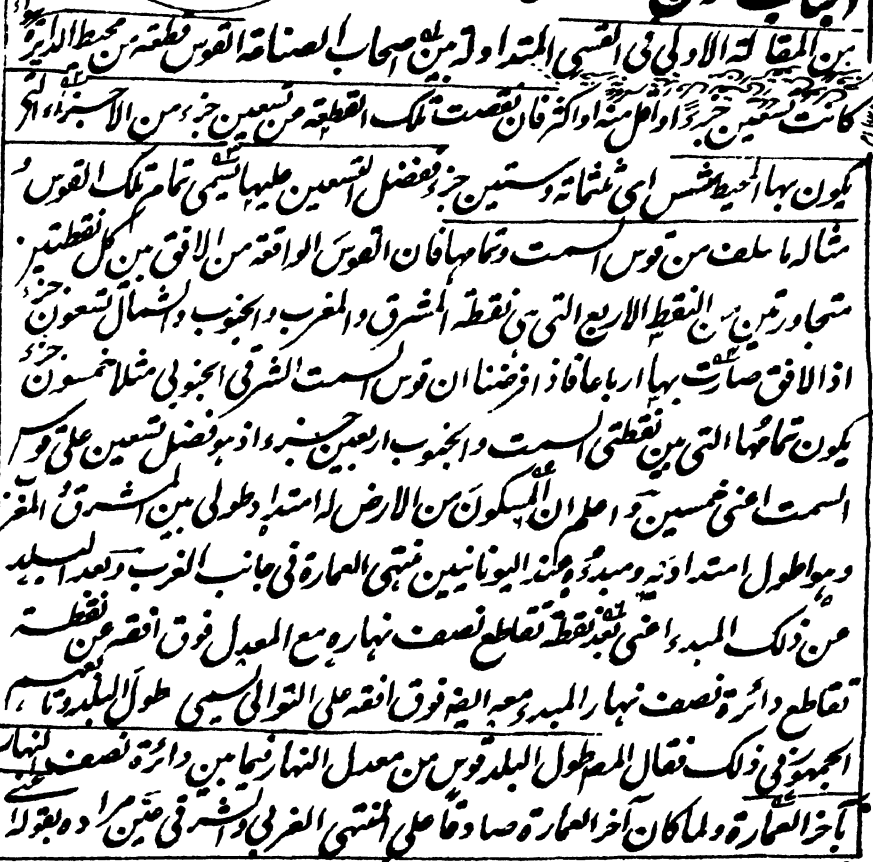 من المقالة الاولى فى القسى المتداولة بين اصحاب الصناعة القوس قطعة من محيط الدايرة
كانت تسعين جزءً او اقل منه او اكثر فان نقصت تلك القطعة من تسعين جزء من الاجزاء التى
يكون بها المحيط شس اى ثلثمائة وستين جزء ففضل التسعين عليها يسمى تمام تلك القوس
مثاله ما سلف من قوس السمت وتمامها فان القوسَ الواقعة من الافق بين كل نقطتين
متجاورتين من النقط الاربع التى هى نقطة المشرق والمغرب والجنوب والشمال تسعون جزءً
اذ الافق صارت بها ارباعا فاذا فرضنا ان قوس السمت الشرقى الجنوبى مثلا خمسون جزءً
يكون تمامُها التى بين نقطتى السمت والجنوب اربعين جزء اذ هو فضل تسعين على قوس
السمت اعنى خمسين واعلم ان المسكونَ من الارض له امتداد طولى بين المشرق والمغرب
وهو اطول امتداديه ومبدؤه عند اليونانيين منتهى العمارة فى جانب الغرب وبعد البلد
عن ذلك المبدء اعنى بعد نقطة تقاطع نصف نهاره مع المعدل فوق افقه عن نقطة
تقاطع دائرة نصف نهار المبدء معه ايضا فوق افقه على التوالى يسمى طول البلد وتابعهم
الجمهور فى ذلك فقال المص طول البلد قوس من معدل النهار فيما بين دائرة نصف النهار
بآخر العمارة ولما كان آخر العمارة صادقا على المنتهى الغربى والشرقى عيّن مراده بقوله اعنى